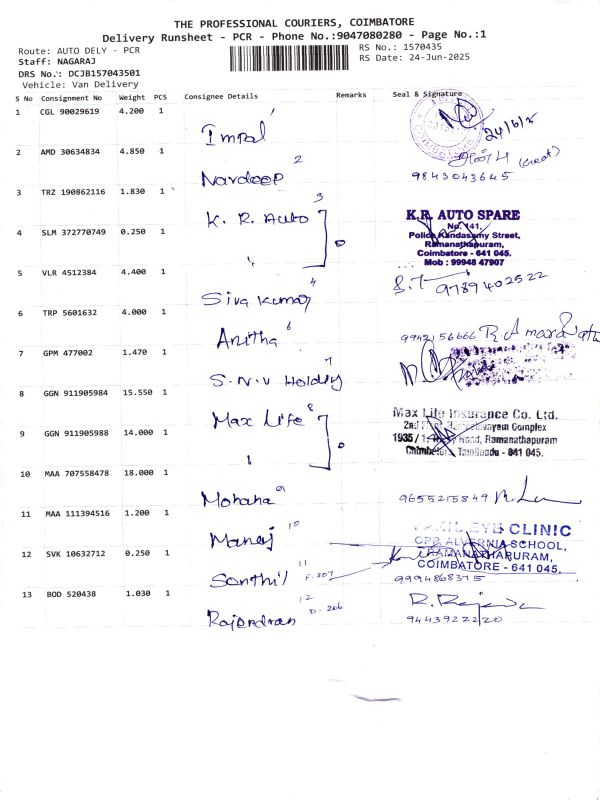 THE PROFESSIONAL COURIERS, COIMBATORE
Delivery Runsheet - PCR - Phone No.:9047080280 - Page No.:1
Route: AUTO DELY - PCR
RS No.: 1570435
Staff: NAGARAJ
RS Date: 24-Jun-2025
DRS No.: DCJB157043501
Vehicle: Van Delivery
S No Consignment No Weight PCS Consignee Details Remarks Seal & Signature
1 CGL 90029619 4.200 1 Impal 24/6/25
2 AMD 30634834 4.850 1 Navdeep 2 9843043645
3 TRZ 190862116 1.830 1 K. R. Auto 3
K.R. AUTO SPARE
No. 141,
Police Kandasamy Street,
Ramanathapuram,
Coimbatore - 641 045.
Mob : 99948 47907
4 SLM 372770749 0.250 1
5 VLR 4512384 4.400 1 Siva Kumar 4 S.T 9789402522
6 TRP 5601632 4.000 1 Anitha 6 9942156666
7 GPM 477002 1.470 1 S.N.V Holdiy 7
8 GGN 911905984 15.550 1 Max Life 8
Max Life Insurance Co. Ltd.
Complex
Road, Ramanathapuram
Coimbatore, Tamilnadu - 641 045.
9 GGN 911905988 14.000 1
10 MAA 707558478 18.000 1 Mohana 9 9655215849
11 MAA 111394516 1.200 1 Manoj 10
EYE CLINIC
OPP. ALVERNIA SCHOOL,
RAMANATHAPURAM,
COIMBATORE - 641 045.
12 SVK 10632712 0.250 1 Santhil 11 F-207 9994868375
13 BOD 520438 1.030 1 Rajendran 12 D-206 9443922220